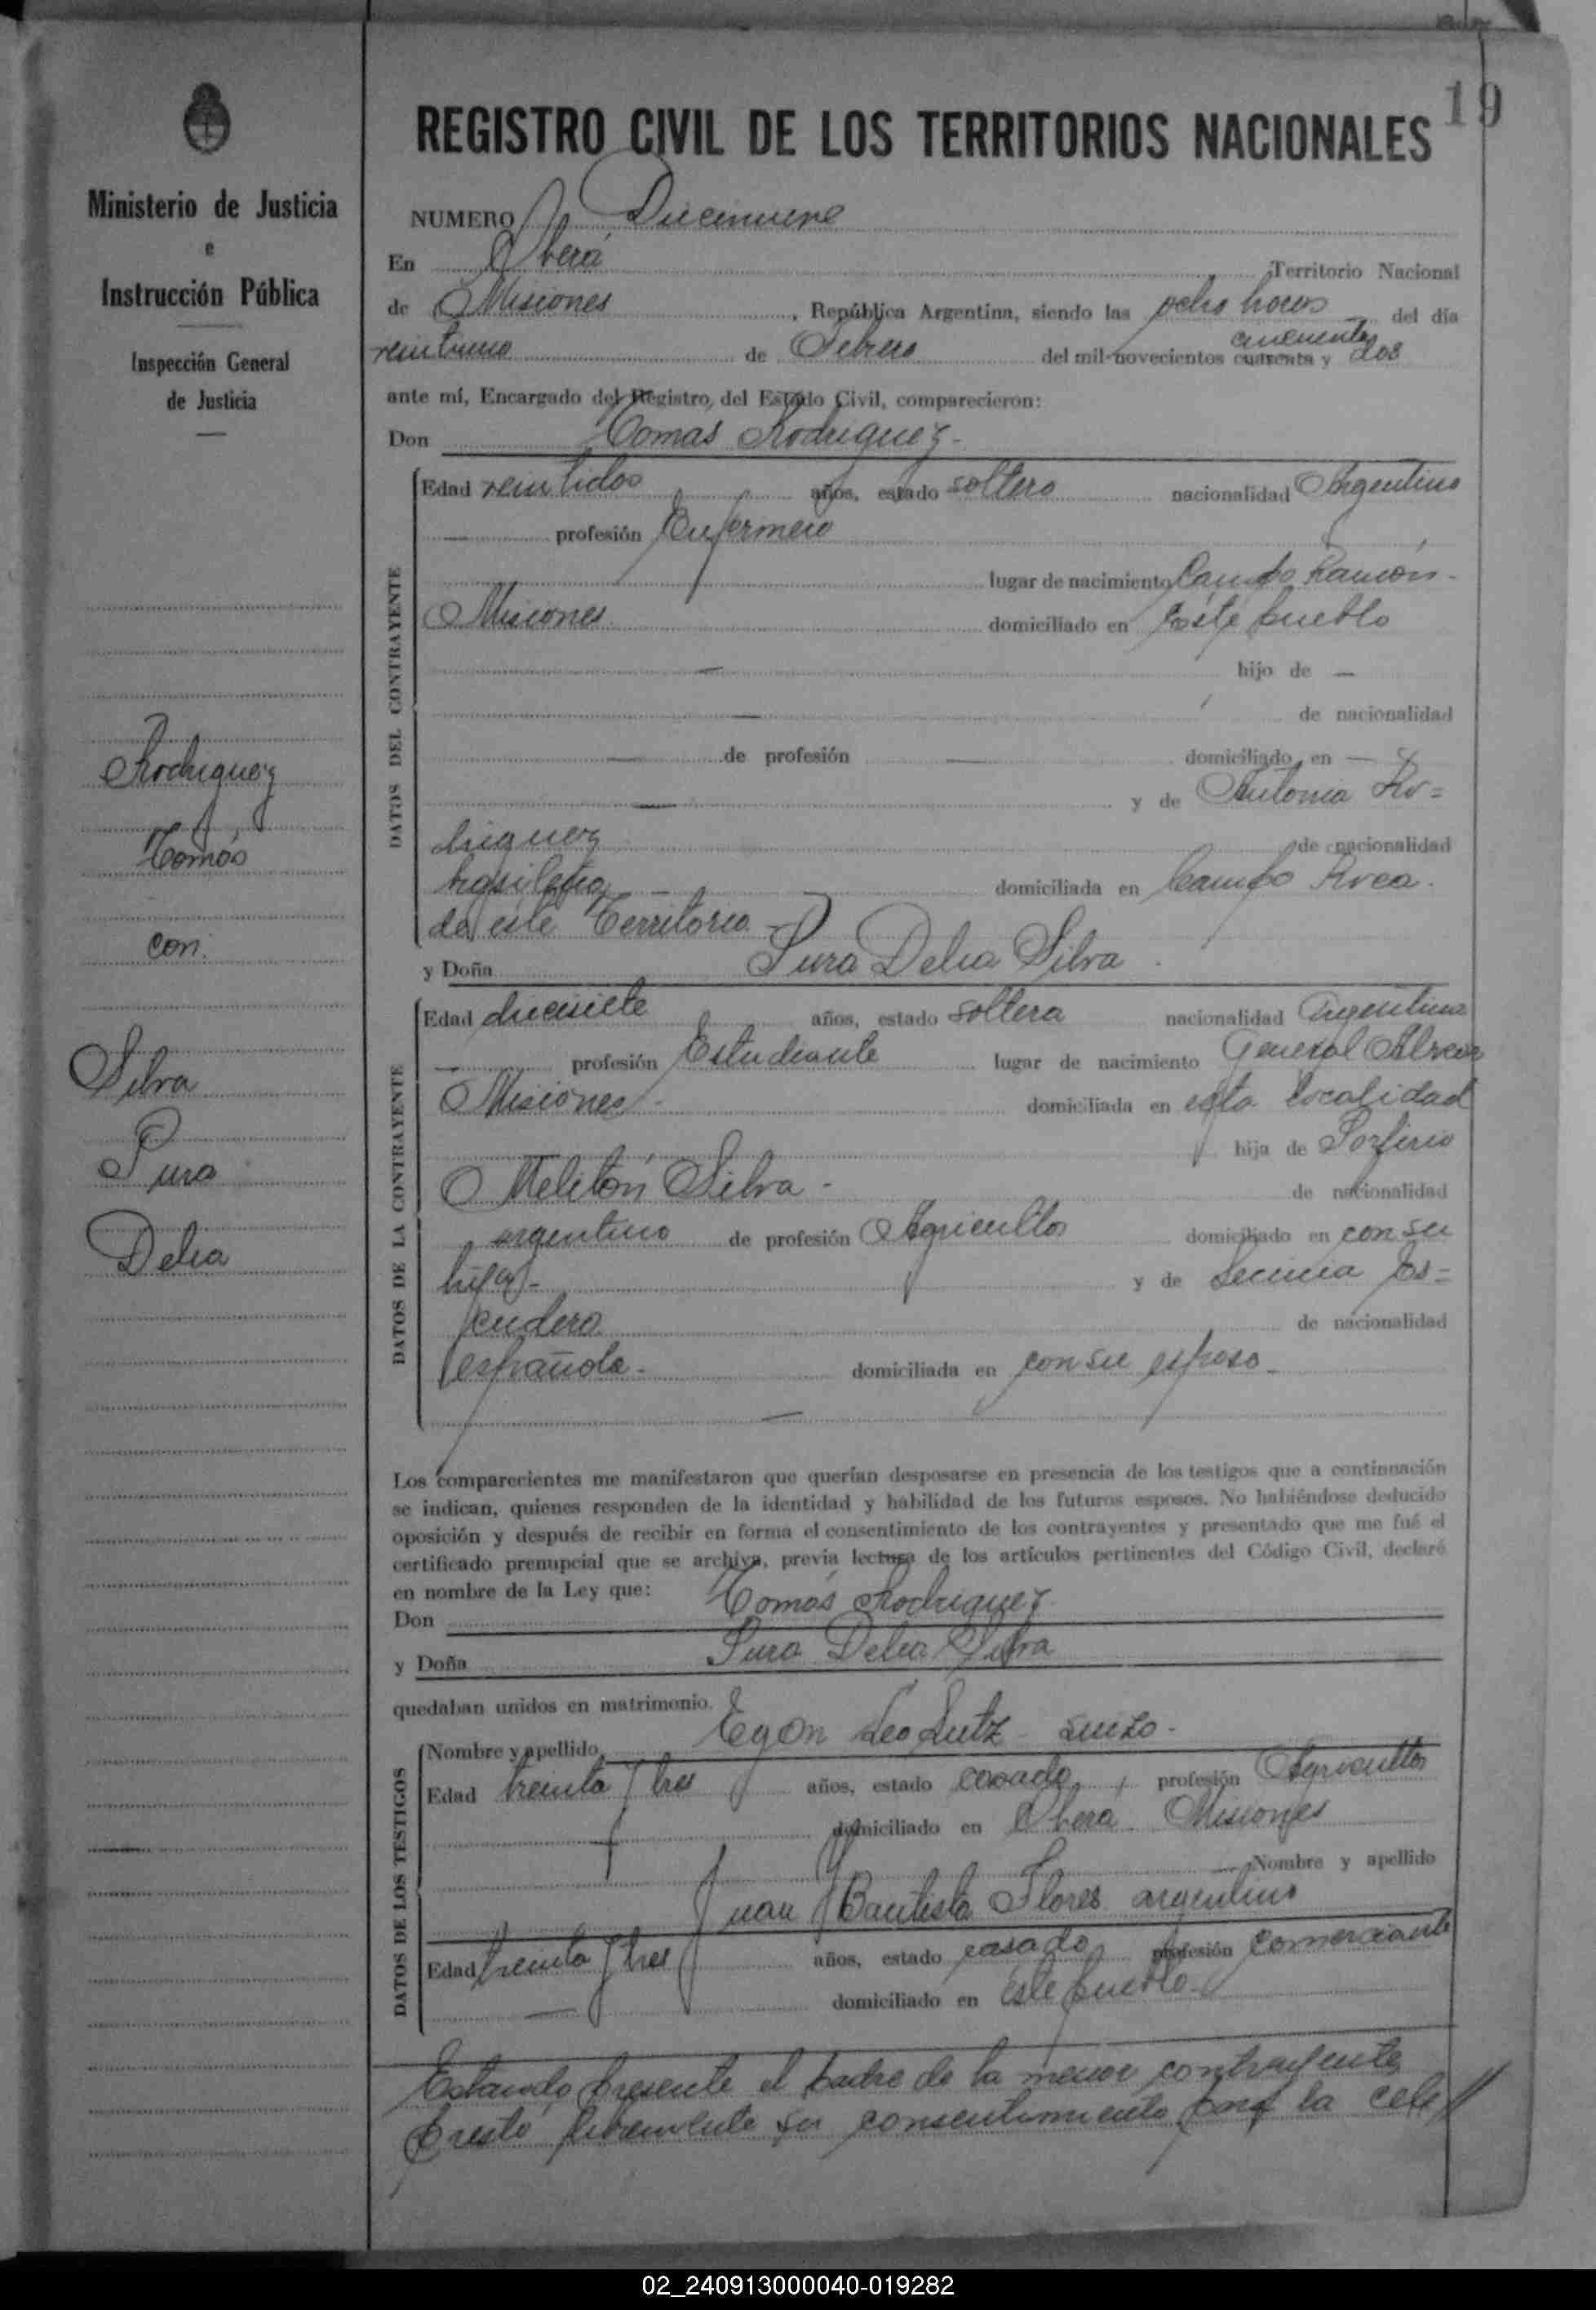 19
Ministerio de Justicia
e
Instrucción Pública
Inspección General
de Justicia
Rodriguez
Tomás
con
Silva
Pura
Delia
REGISTRO CIVIL DE LOS TERRITORIOS NACIONALES
NUMERO Diecinueve
En Oberá Territorio Nacional
de Misiones, República Argentina, siendo las ocho horas del día
veintiuno de Febrero del mil novecientos cuarenta cincuenta y dos
ante mí, Encargado del Registro del Estado Civil, comparecieron:
Don Tomás Rodriguez-
DATOS DEL CONTRAYENTE
Edad veintidos años, estado soltero nacionalidad Argentino
— profesión Enfermero
lugar de nacimiento Campo Ramón-
Misiones domiciliado en Este pueblo
— hijo de —
— de nacionalidad
— de profesión — domiciliado en —
— y de Antonia Ro=
driguez de nacionalidad
brasileña — domiciliada en Campo Roca.
de este Territorio -
y Doña Pura Delia Silva.
DATOS DE LA CONTRAYENTE
Edad diecisiete años, estado soltera nacionalidad Argentina
— profesión Estudiante lugar de nacimiento General Alvear
Misiones- domiciliada en esta localidad
hija de Porfirio
Melitón Silva - de nacionalidad
argentino de profesión Agricultor domiciliado en con su
hija- y de Es=
cudero de nacionalidad
española- domiciliada en con su esposo-
—
Los comparecientes me manifestaron que querían desposarse en presencia de los testigos que a continuación
se indican, quienes responden de la identidad y habilidad de los futuros esposos. No habiéndose deducido
oposición y después de recibir en forma el consentimiento de los contrayentes y presentado que me fué el
certificado prenupcial que se archiva, previa lectura de los artículos pertinentes del Código Civil, declaré
en nombre de la Ley que:
Don Tomás Rodriguez-
y Doña Pura Delia Silva
quedaban unidos en matrimonio.
DATOS DE LOS TESTIGOS
Nombre y apellido Egon Leo Lutz - suizo-
Edad treinta y tres años, estado casado, profesión Agricultor
domiciliado en Oberá. Misiones
Nombre y apellido
Juan Bautista Flores argentino
Edad treinta y tres años, estado casado profesión comerciante
— domiciliado en este pueblo-
Estando presente el padre de la menor contrayente
prestó libremente su consentimiento para la cele
02_240913000040-019282